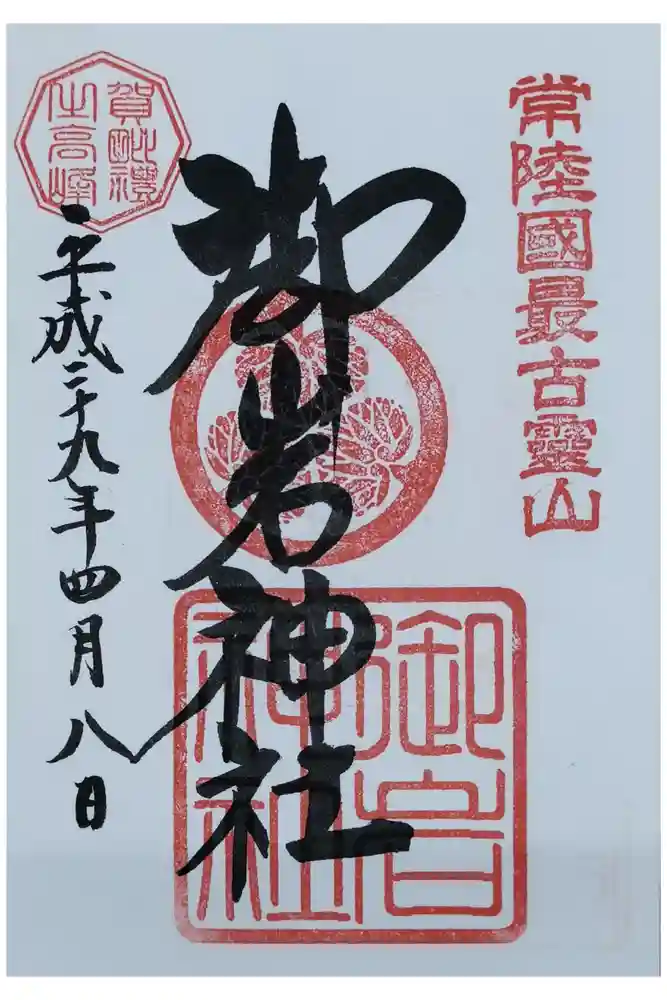 常陸國最古靈山
御岩神社
御岩神社
賀毗禮
之高峰
平成二十九年四月八日